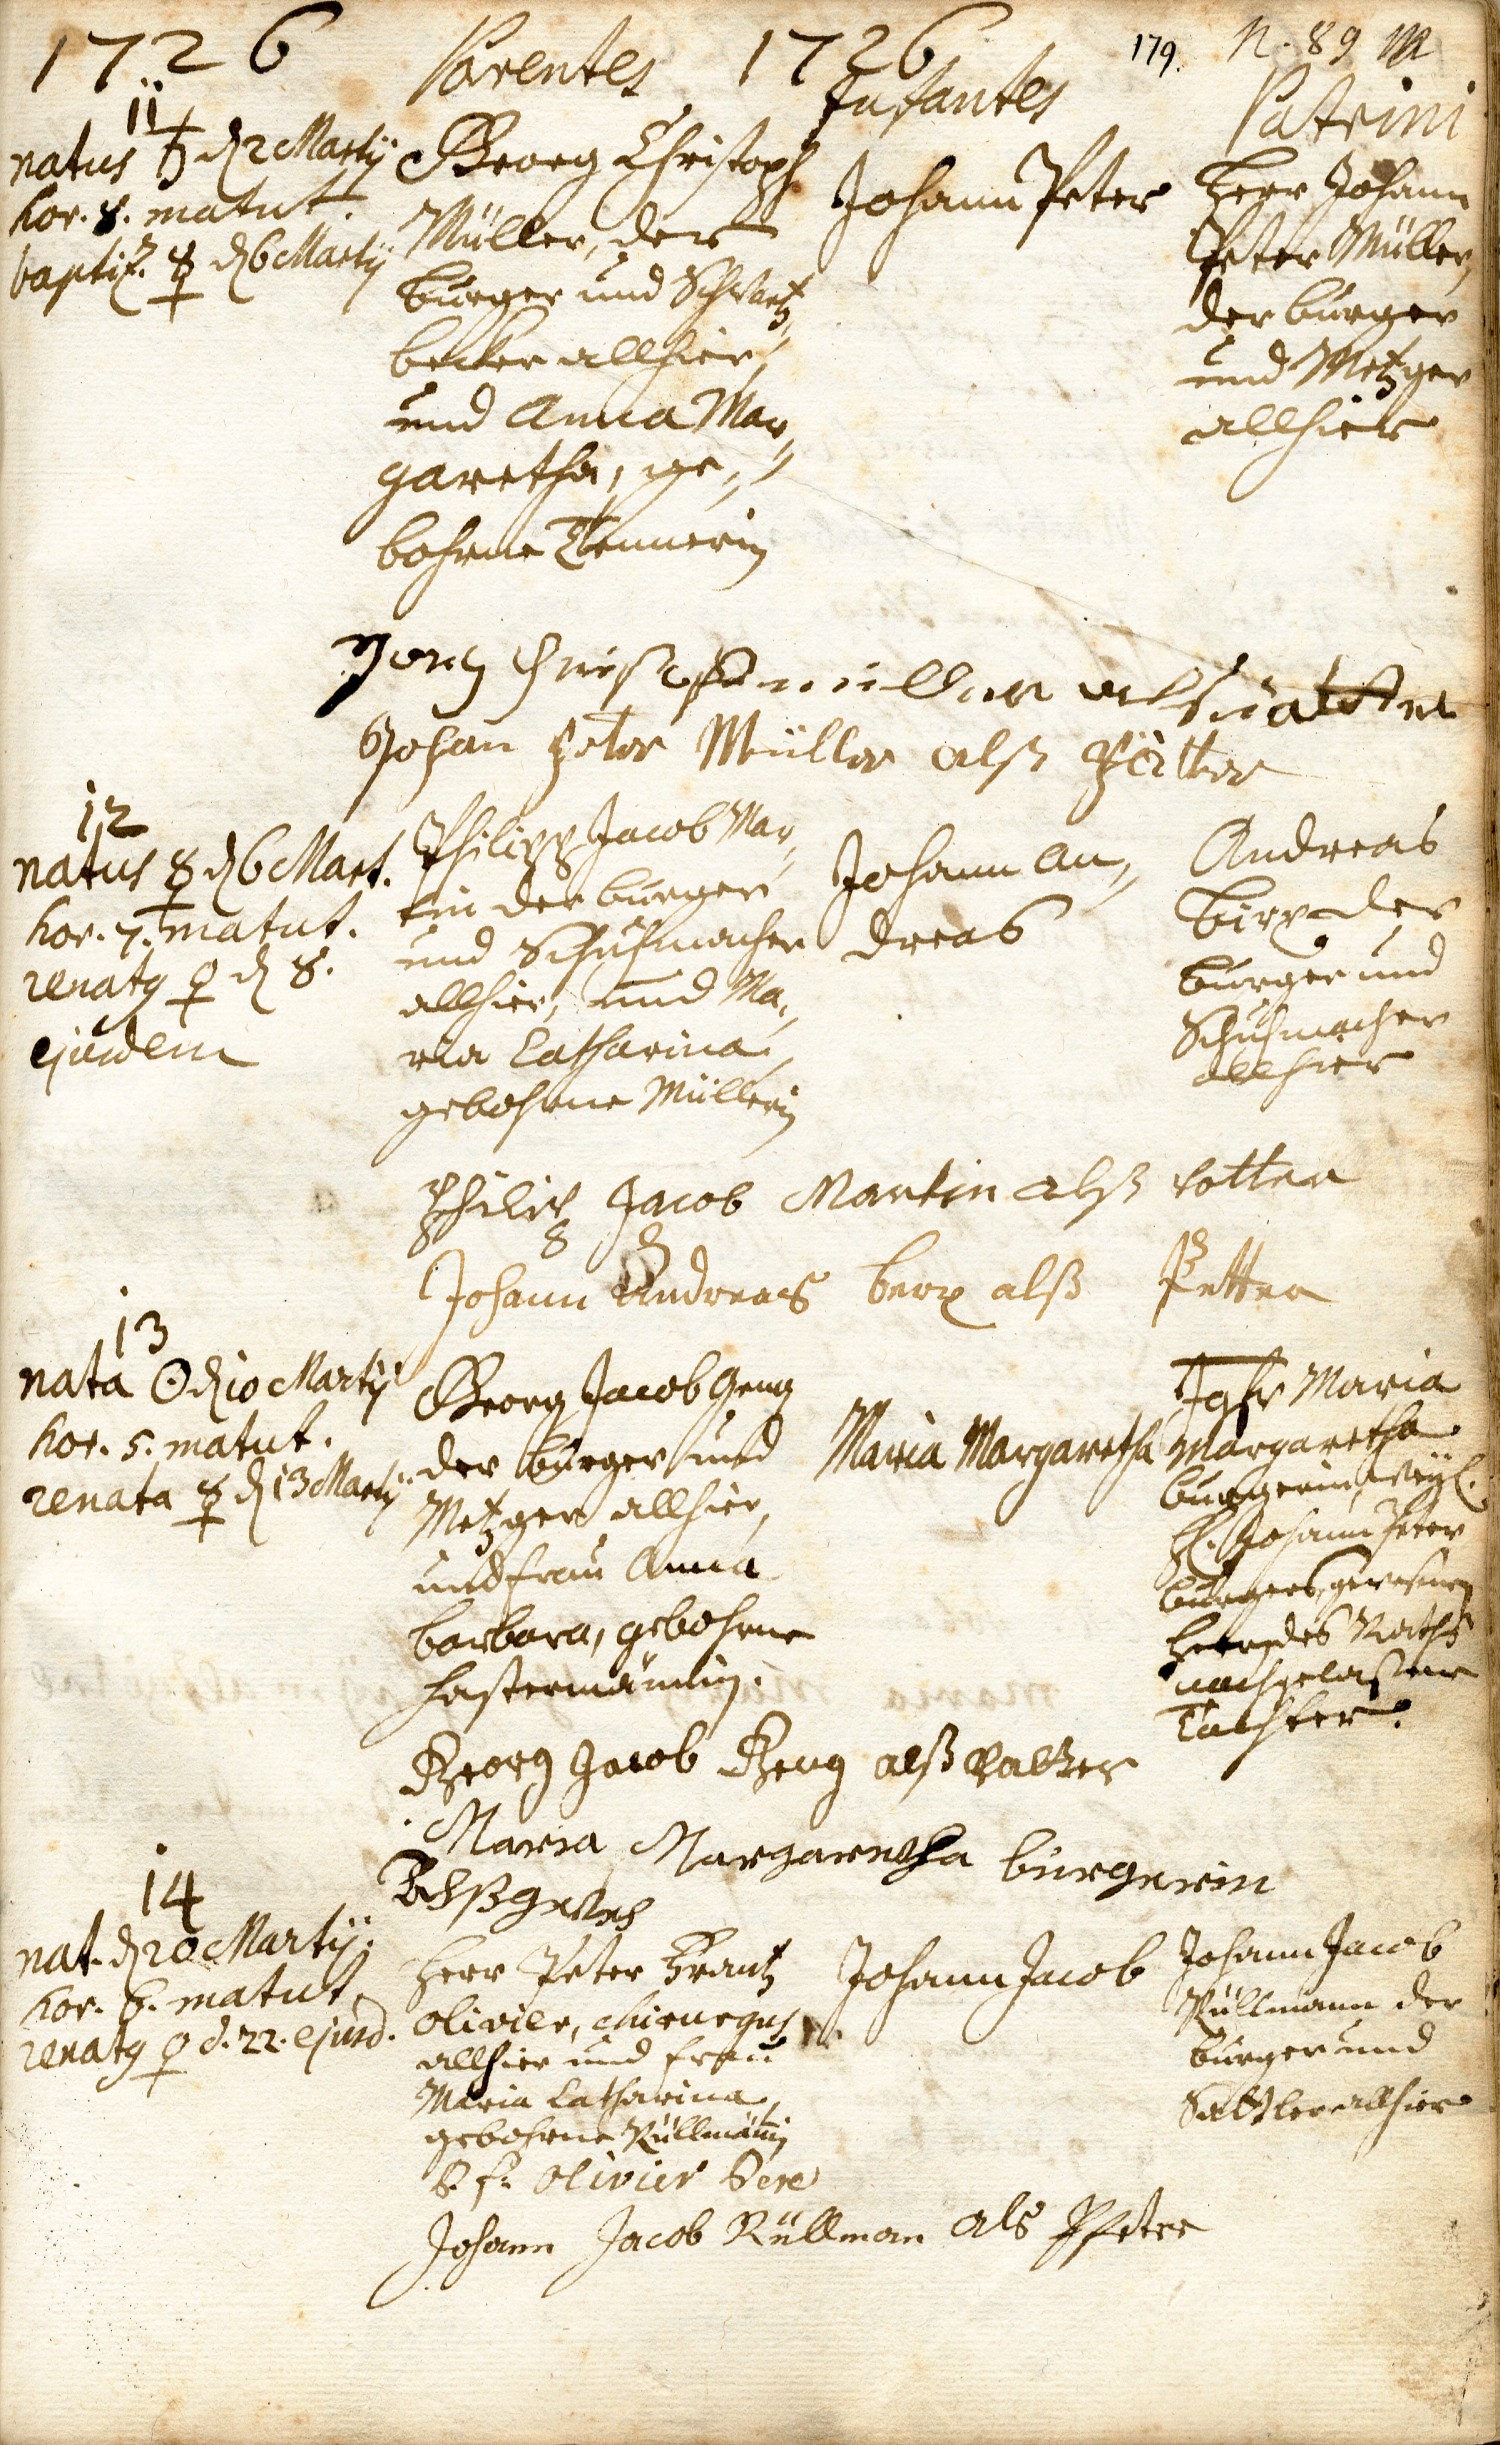 1726 Parentes 1726 Infantes 179. N. 89 M
Patrini
11
natus ♄ d 2 Martij
hor. 8. matut.
baptiz. ☿ d 6 Martij
Georg Christoph
Müller, der
burger und Schwartz,,
becker allhier,
und Anna Mar,,
garetha, ge,,
bohrne
Johann Peter
Herr Johann
Peter Müller,
der burger
und Metzger
allhier
Johan Peter Müller alß Pötter
12
natus ☿ d 6 Mart.
hor. 7. matut.
renatg ♀ d 8.
ejusdem
Philipp Jacob Mar,,
tin der burger
und Schuhmacher
allhier, und Ma,,
ria Catharina,
gebohrne Müllerin
Johann An,,
dreas
Andreas
birx der
burger und
Schuhmacher
allhier
Philip Jacob Martin alß votter
Johann Andreas berx alß Petter
13
nata ☉ d 10 Martij
hor. 5. matut.
renata ☿ d 13 Martij
Georg Jacob Geng
der burger und
Metzger allhier,
und frau Anna
barbara, gebohrne
hastermännin.
Maria Margaretha
Jgfr Maria
Margaretha
burgerin, weyl.
H. Johann Peter
burgers, gewesenen
des Raths
nachgelaßene
Tochter.
Georg Jacob Geng alß Vatter
Maria Margaretha burgerin
Alß
14
nat. d 20 Martij.
hor. 6. matut.
renatg ♀ d. 22. ejusd.
Herr Peter Frantz
Olivier, chirurgus
allhier und frau
Maria Catharina,
gebohrne Rüllmännin
Johann Jacob
Johann Jacob
Rüllmann der
burger und
Sattler allhier
P. f. Olivier Pere
Johann Jacob Rüllman als Pfetter